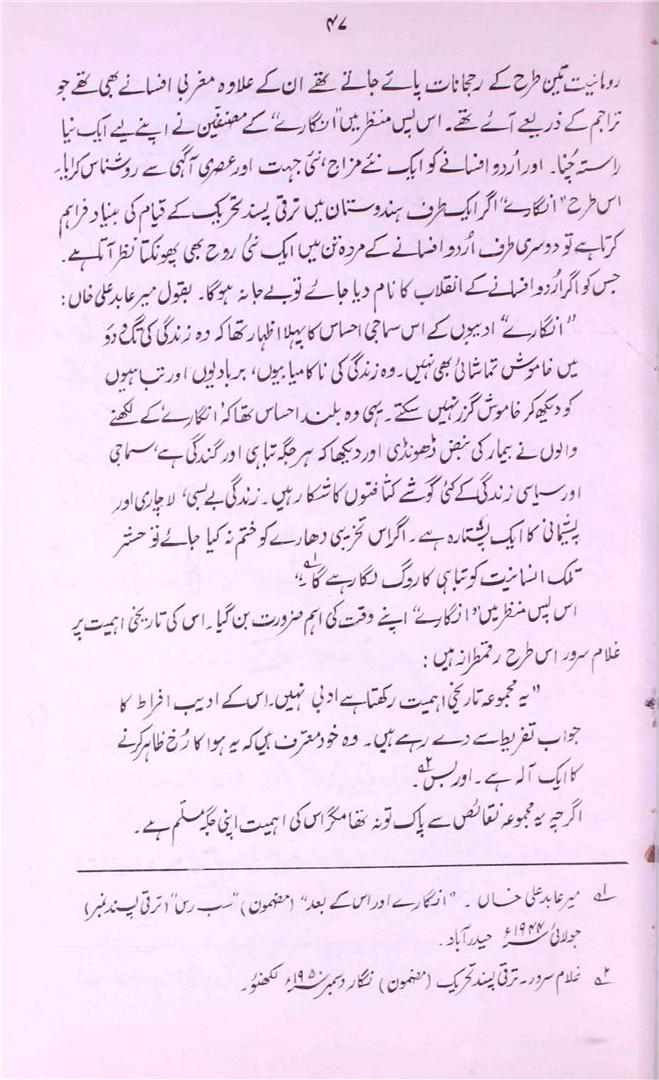 ۴۷
رومانیت تین طرح کے رجحانات پائے جاتے تھے ان کے علاوہ مغربی افسانے بھی تھے جو
تراجم کے ذریعے آئے تھے۔ اس پس منظر میں "انگارے" کے مصنفین نے اپنے لیے ایک نیا
راستہ چُنا۔ اور اُردو افسانے کو ایک نئے مزاج، نئی جہت اور عصری آگہی سے روشناس کرایا۔
اس طرح "انگارے" اگر ایک طرف ہندوستان میں ترقی پسند تحریک کے قیام کی بنیاد فراہم
کرتا ہے تو دوسری طرف اُردو افسانے کے مردہ تن میں ایک نئی روح بھی پھونکتا نظر آتا ہے۔
جس کو اگر اُردو افسانے کے انقلاب کا نام دیا جائے تو بے جا نہ ہوگا۔ بقول میر عابد علی خاں:
"انگارے" ادیبوں کے اس سماجی احساس کا پہلا اظہار تھا کہ وہ زندگی کی تگ و دو
میں خاموش تماشائی بھی نہیں۔ وہ زندگی کی ناکامیابیوں، بربادیوں اور تباہیوں
کو دیکھ کر خاموش گزر نہیں سکتے۔ یہی وہ بلند احساس تھا کہ "انگارے" کے لکھنے
والوں نے بیمار کی نبض ڈھونڈی اور دیکھا کہ ہر جگہ تباہی اور گندگی ہے، سماجی
اور سیاسی زندگی کے کئی گوشے کثافتوں کا شکار ہیں۔ زندگی بے بسی، لاچاری اور
پشیمانی کا ایک پشتارہ ہے۔ اگر اس تخریبی دھارے کو ختم نہ کیا جائے تو حشر
تلک انسانیت کو تباہی کا روگ لگا رہے گا" ؎۱
اس پس منظر میں "انگارے" اپنے وقت کی اہم ضرورت بن گیا۔ اس کی تاریخی اہمیت پر
غلام سرور اس طرح رقمطراز ہیں:
"یہ مجموعہ تاریخی اہمیت رکھتا ہے ادبی نہیں۔ اس کے ادیب افراط کا
جواب تفریط سے دے رہے ہیں۔ وہ خود معترف ہیں کہ یہ ہوا کا رُخ ظاہر کرنے
کا ایک آلہ ہے۔ اور بس ؎۲۔
اگرچہ یہ مجموعہ نقائص سے پاک تو نہ تھا مگر اس کی اہمیت اپنی جگہ مسلم ہے۔
؎۱ میر عابد علی خاں۔ "انگارے اور اس کے بعد" (مضمون) "سب رس" (ترقی پسند نمبر)
جولائی ۱۹۴۴ء حیدرآباد۔
؎۲ غلام سرور۔ ترقی پسند تحریک (مضمون) نگار دسمبر ۱۹۵۰ء لکھنؤ۔